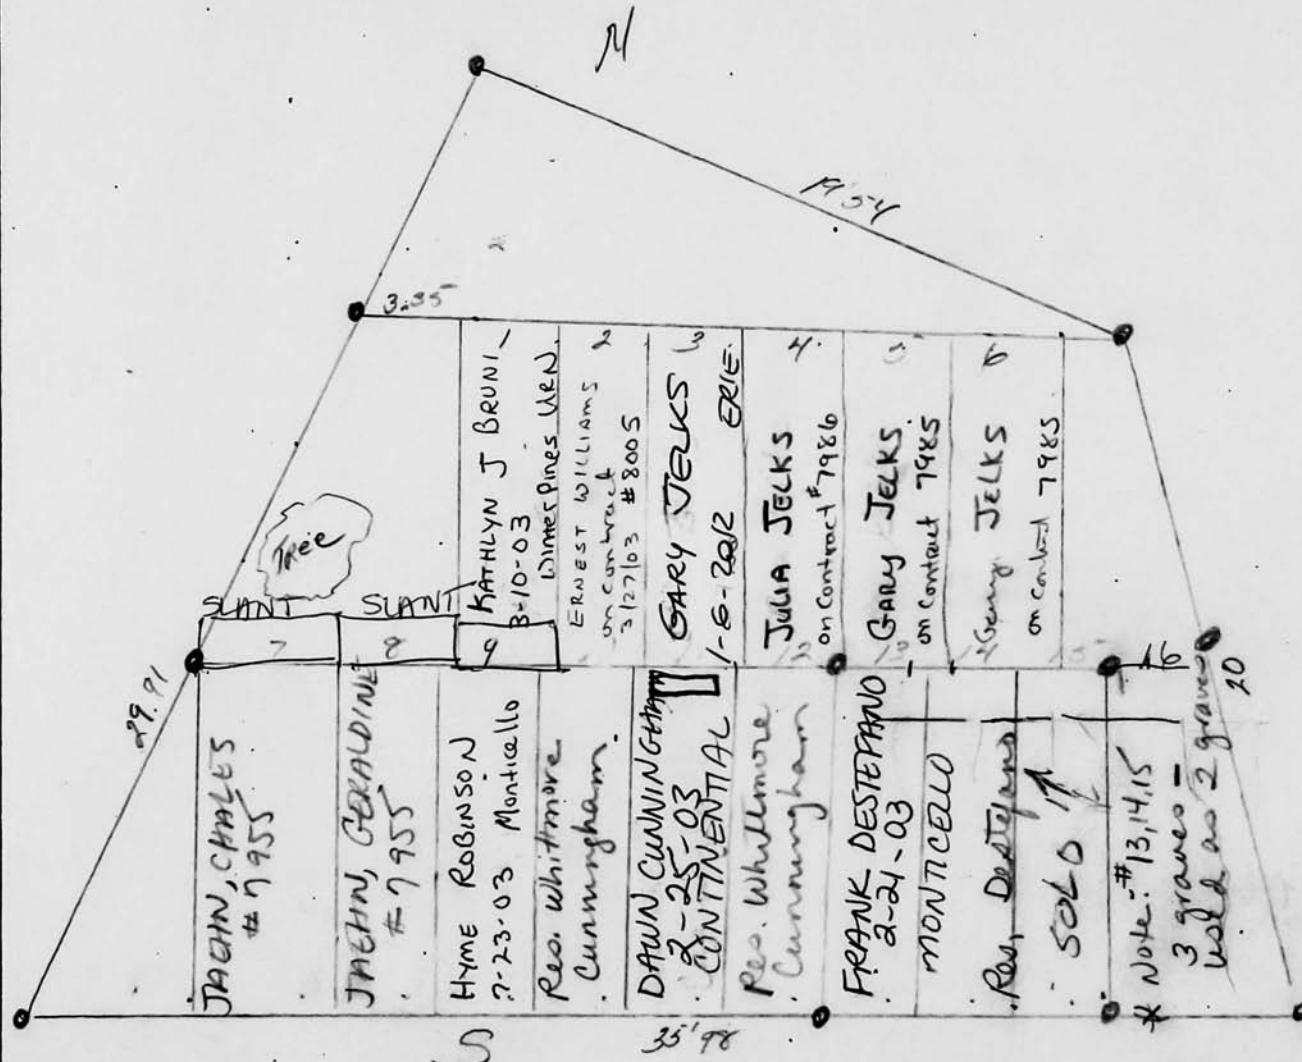 N
19'54
3.35
KATHLYN J BRUNI
3-10-03
Winter Pines URN
2
ERNEST WILLIAMS
on contract
3/27/03 #8005
3
GARY JELKS
1-6-2012 ERIE
4
JULIA JELKS
on Contract #7986
5
GARY JELKS
on Contract 7985
6
Gerry JELKS
on contract 7985
TREE
SLANT
SLANT
7
8
9
16
20
29.91
JAEHN, CHALES
#7955
JAEHN, GERALDINE
#7955
HYME ROBINSON
7-23-03 Monticello
Res. Whitmore
Cunningham
DAWN CUNNINGHAM
2-25-03
CONTINENTAL
Res. Whillmore
Cunningham
FRANK DESTEFANO
2-21-03
MONTICELLO
Res, Destefano
SOLD
* Note: #13,14,15
3 graves =
used as 2 graves
S
35'98